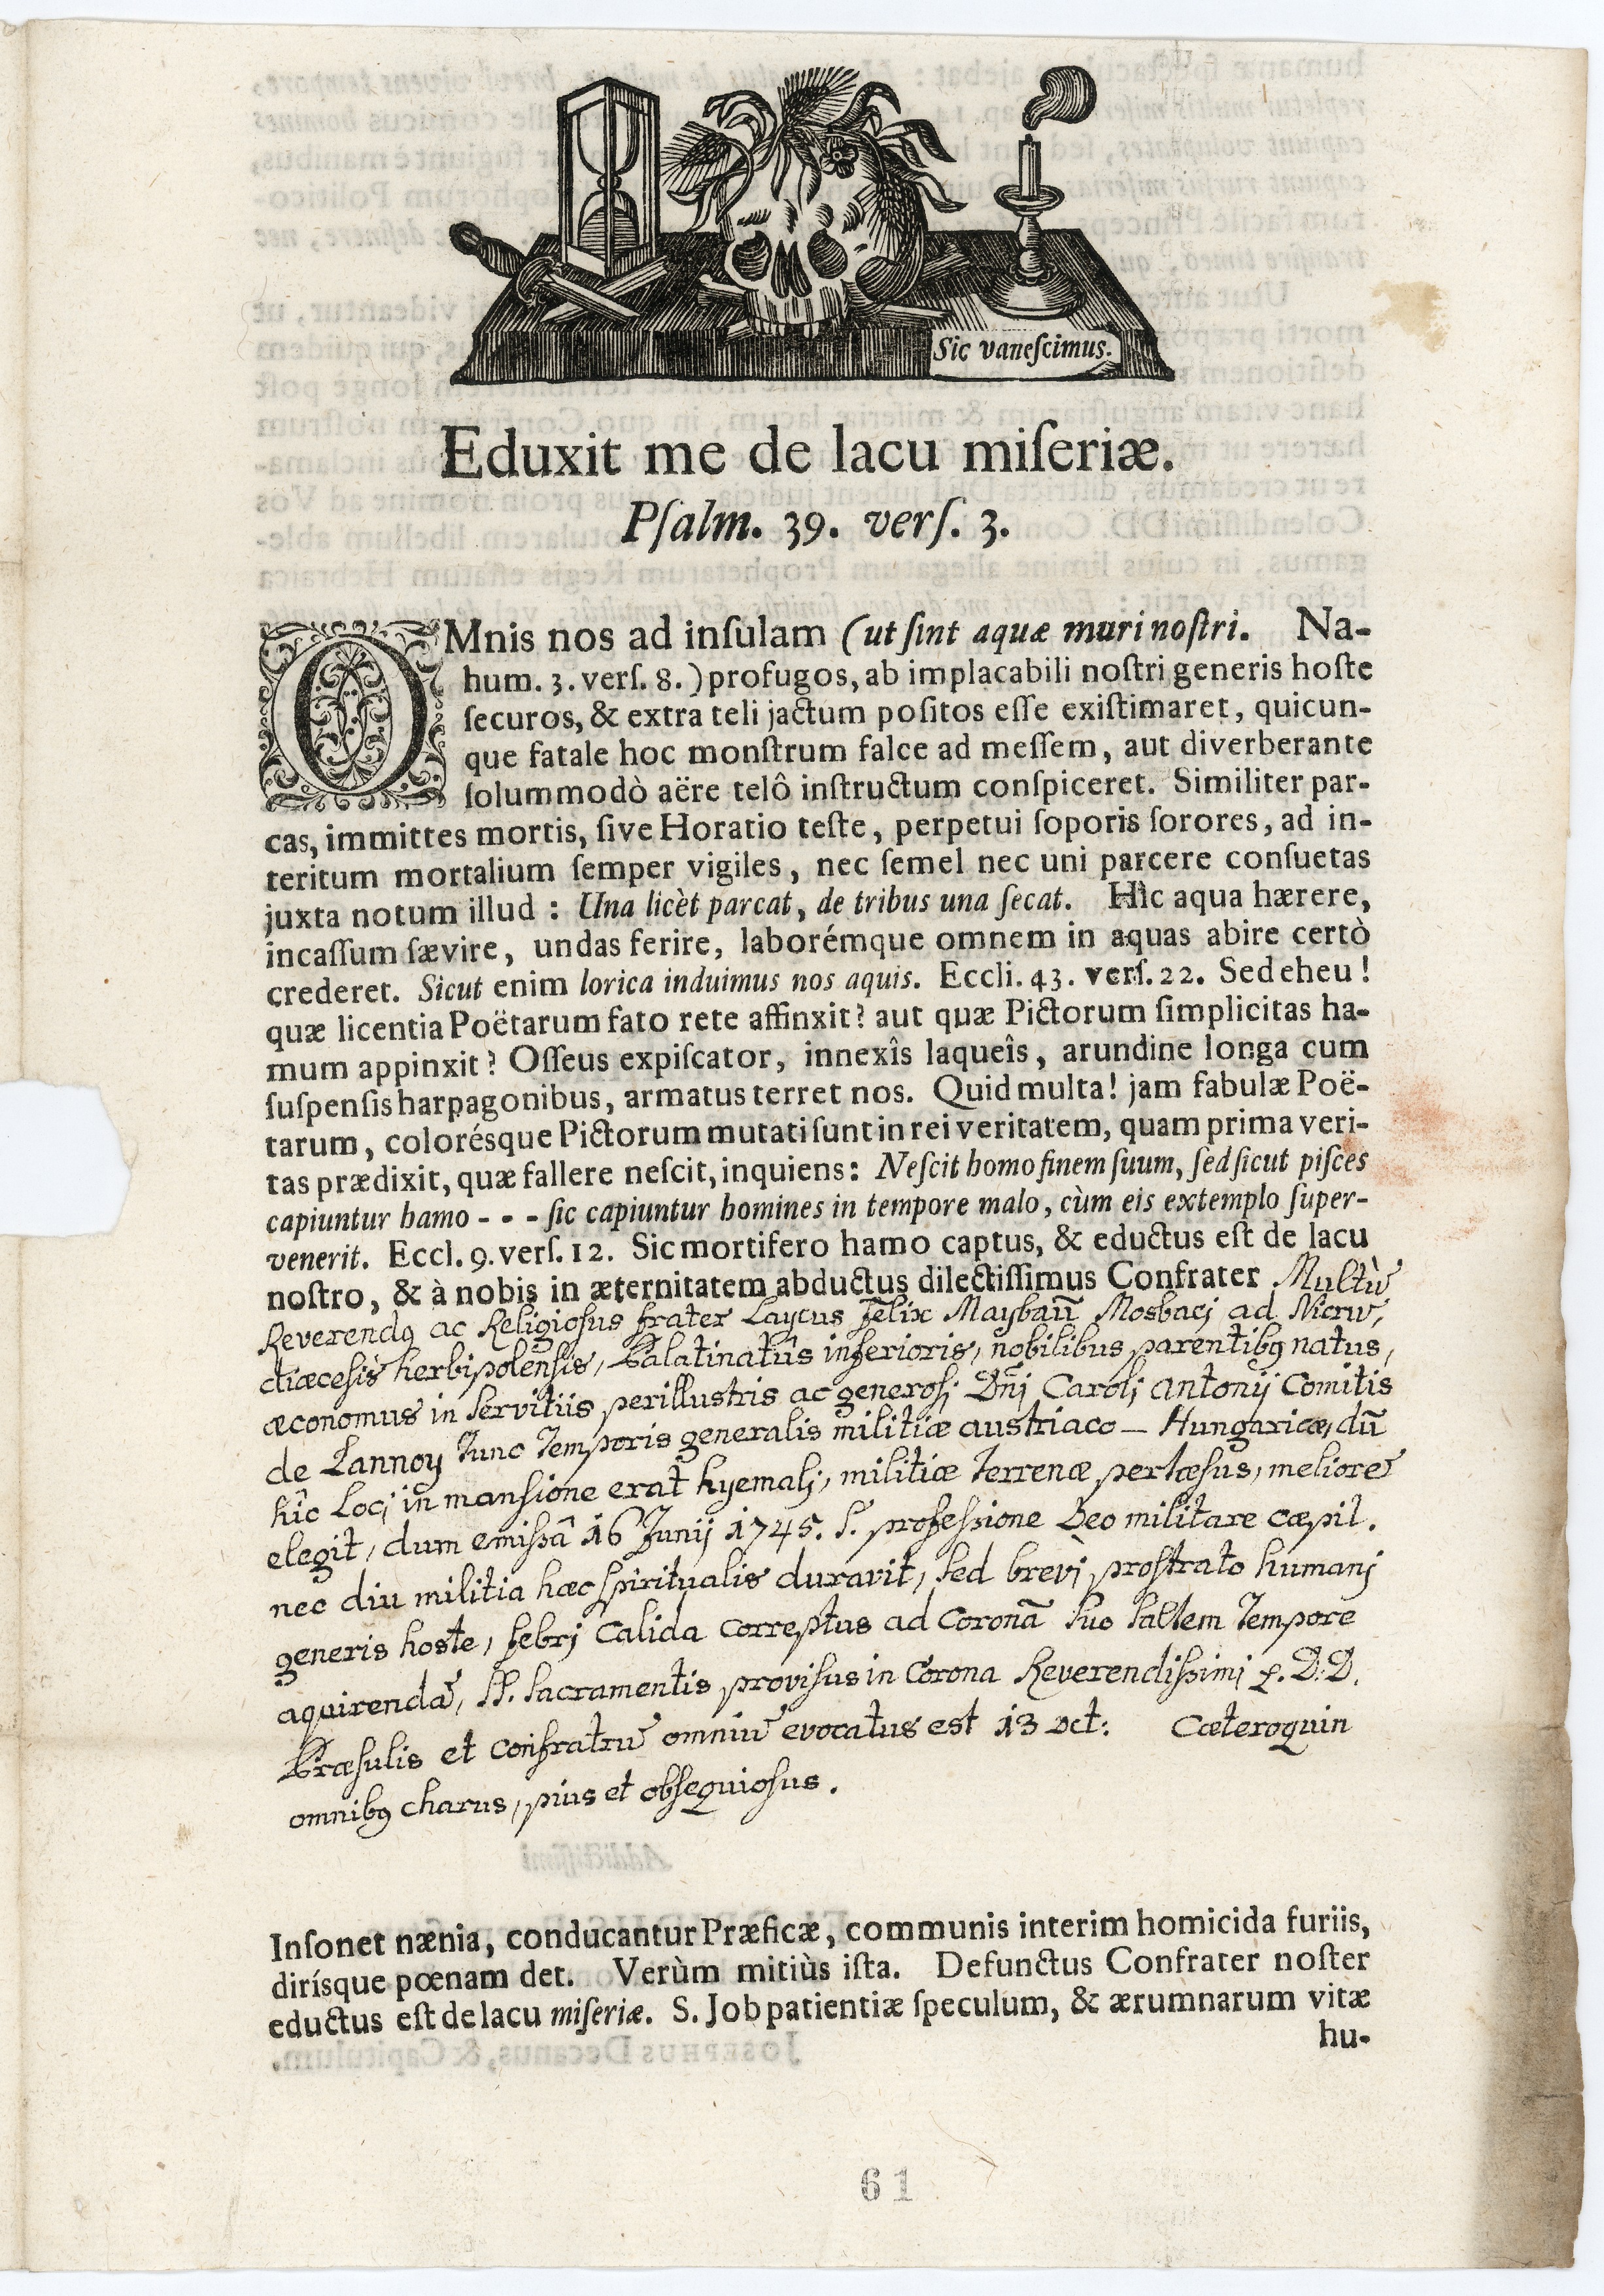 Sic vaneſcimus.
Eduxit me de lacu miſeriæ.
Pſalm. 39. verſ. 3.
OMnis nos ad inſulam (ut ſint aquæ muri noſtri. Na-
hum. 3. verſ. 8.) profugos, ab implacabili noſtri generis hoſte
ſecuros, & extra teli jactum poſitos eſſe exiſtimaret, quicun-
que fatale hoc monſtrum falce ad meſſem, aut diverberante
ſolummodò aëre telô inſtructum conſpiceret. Similiter par-
cas, immittes mortis, ſive Horatio teſte, perpetui ſoporis ſorores, ad in-
teritum mortalium ſemper vigiles, nec ſemel nec uni parcere conſuetas
juxta notum illud : Una licèt parcat, de tribus una ſecat. Hìc aqua hærere,
incaſſum ſævire, undas ferire, laborémque omnem in aquas abire certò
crederet. Sicut enim lorica induimus nos aquis. Eccli. 43. verſ. 22. Sed eheu !
quæ licentia Poëtarum fato rete affinxit? aut quæ Pictorum ſimplicitas ha-
mum appinxit? Oſſeus expiſcator, innexîs laqueîs, arundine longa cum
ſuſpenſis harpagonibus, armatus terret nos. Quid multa! jam fabulæ Poë-
tarum, colorésque Pictorum mutati ſunt in rei veritatem, quam prima veri-
tas prædixit, quæ fallere neſcit, inquiens: Neſcit homo finem ſuum, ſed ſicut piſces
capiuntur hamo - - - ſic capiuntur homines in tempore malo, cùm eis extemplo ſuper-
venerit. Eccl. 9. verſ. 12. Sic mortifero hamo captus, & eductus eſt de lacu
noſtro, & à nobis in æternitatem abductus dilectiſſimus Confrater Multũ
Reverendꝰ ac Religiosus frater Laycus Fẽlix Maybaũ Mosbacj ad Nicrũ,
diœcesis herbipolensis, Palatinatûs inferioris, nobilibus parentibꝰ natus,
œconomus in servitiis perillustris ac generosj Dñj Carolj Antonij Comitis
de Lannoy tunc temporis generalis militiæ austriaco – Hungaricæ, dũ
hîc locj in mansione erat hyemalj, militiæ terrenæ pertæsus, meliorẽ
elegit, dum emissâ 16 Junij 1745. S. professione Deo militare cæpit.
nec diu militia hæc spiritualis duravit, sed brevì prostrato humanj
generis hoste, febrj calida correptus ad coronã suo saltem tempore
aquirendã, SS. Sacramentis provisus in corona Reverendissimi P. D. D.
Præsulis et confratrũ omniũ evocatus est 13 oct: Cæteroquin
omnibꝰ charus, pius et obsequiosus.
Inſonet nænia, conducantur Præficæ, communis interim homicida furiis,
dirísque pœnam det. Verùm mitiùs iſta. Defunctus Confrater noſter
eductus eſt de lacu miſeriæ. S. Job patientiæ ſpeculum, & ærumnarum vitæ
hu-
61